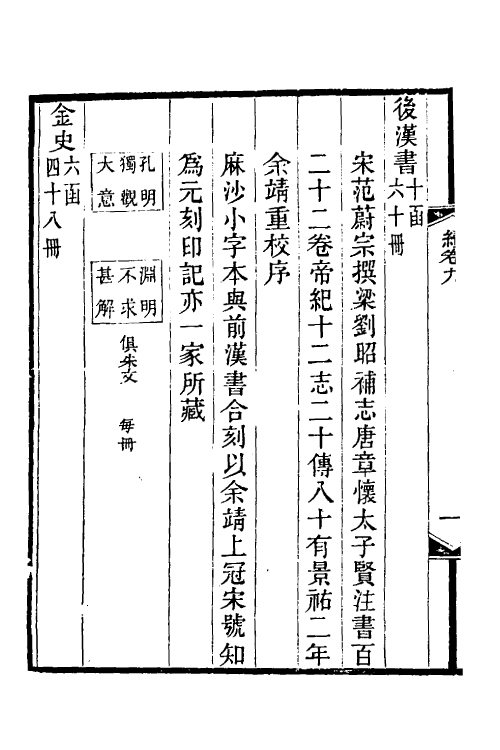 後漢書十函六十冊
宋范蔚宗撰梁劉昭補志唐章懷太子賢注書百
二十二卷帝紀十二志二十傳八十有景祐二年
余靖重校序
麻沙小字本與前漢書合刻以余靖上冠宋號知
為元刻印記亦一家所藏
孔明
獨觀
大意
淵明
不求
甚解
俱朱文 每冊
金史六函四十八冊
卷九
一